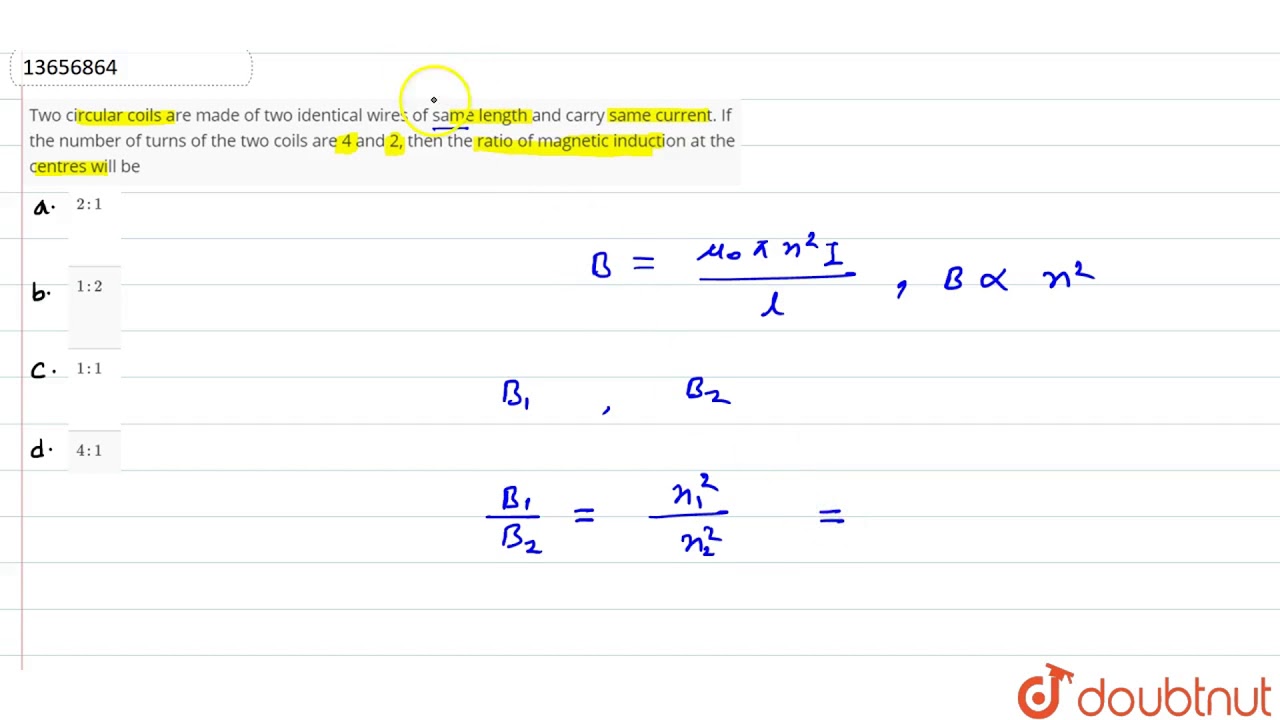 13656864
Two circular coils are made of two identical wires of same length and carry same current. If
the number of turns of the two coils are 4 and 2, then the ratio of magnetic induction at the
centres will be
a. 2:1
B = μ₀ π n² I / l , B ∝ n²
b. 1:2
c. 1:1
B₁ , B₂
d. 4:1
B₁ / B₂ = n₁² / n₂² =
doubtnut